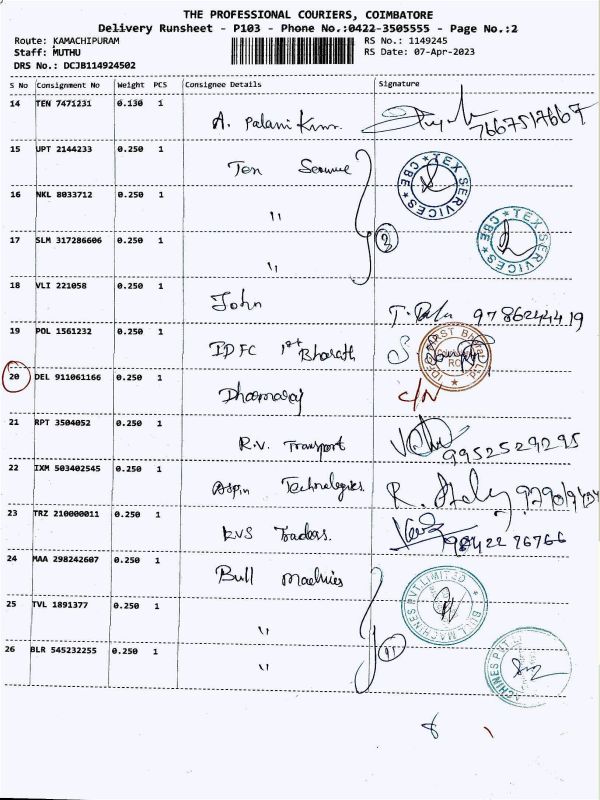 THE PROFESSIONAL COURIERS, COIMBATORE
Delivery Runsheet - P103 - Phone No.:0422-3505555 - Page No.:2
Route: KAMACHIPURAM RS No.: 1149245
Staff: MUTHU RS Date: 07-Apr-2023
DRS No.: DCJB114924502
S No Consignment No Weight PCS Consignee Details Signature
14 TEN 7471231 0.130 1 A. Palani Kum. 7667517667
15 UPT 2144233 0.250 1 Tex Service TEX SERVICES CBE
16 NKL 8033712 0.250 1 " TEX SERVICES CBE
17 SLM 317286606 0.250 1 " 3
18 VLI 221058 0.250 1 John 9786244419
19 POL 1561232 0.250 1 IDFC 1st Bharath
20 DEL 911061166 0.250 1 Dharmaraj C/N
21 RPT 3504052 0.250 1 R.V. Transport 9952529295
22 IXM 503402545 0.250 1 Aspin Technologies R.
23 TRZ 210000011 0.250 1 KVS Traders. 9842276766
24 MAA 298242607 0.250 1 Bull Machies BULL MACHINES PVT.LIMITED
25 TVL 1891377 0.250 1 "
26 BLR 545232255 0.250 1 "
8